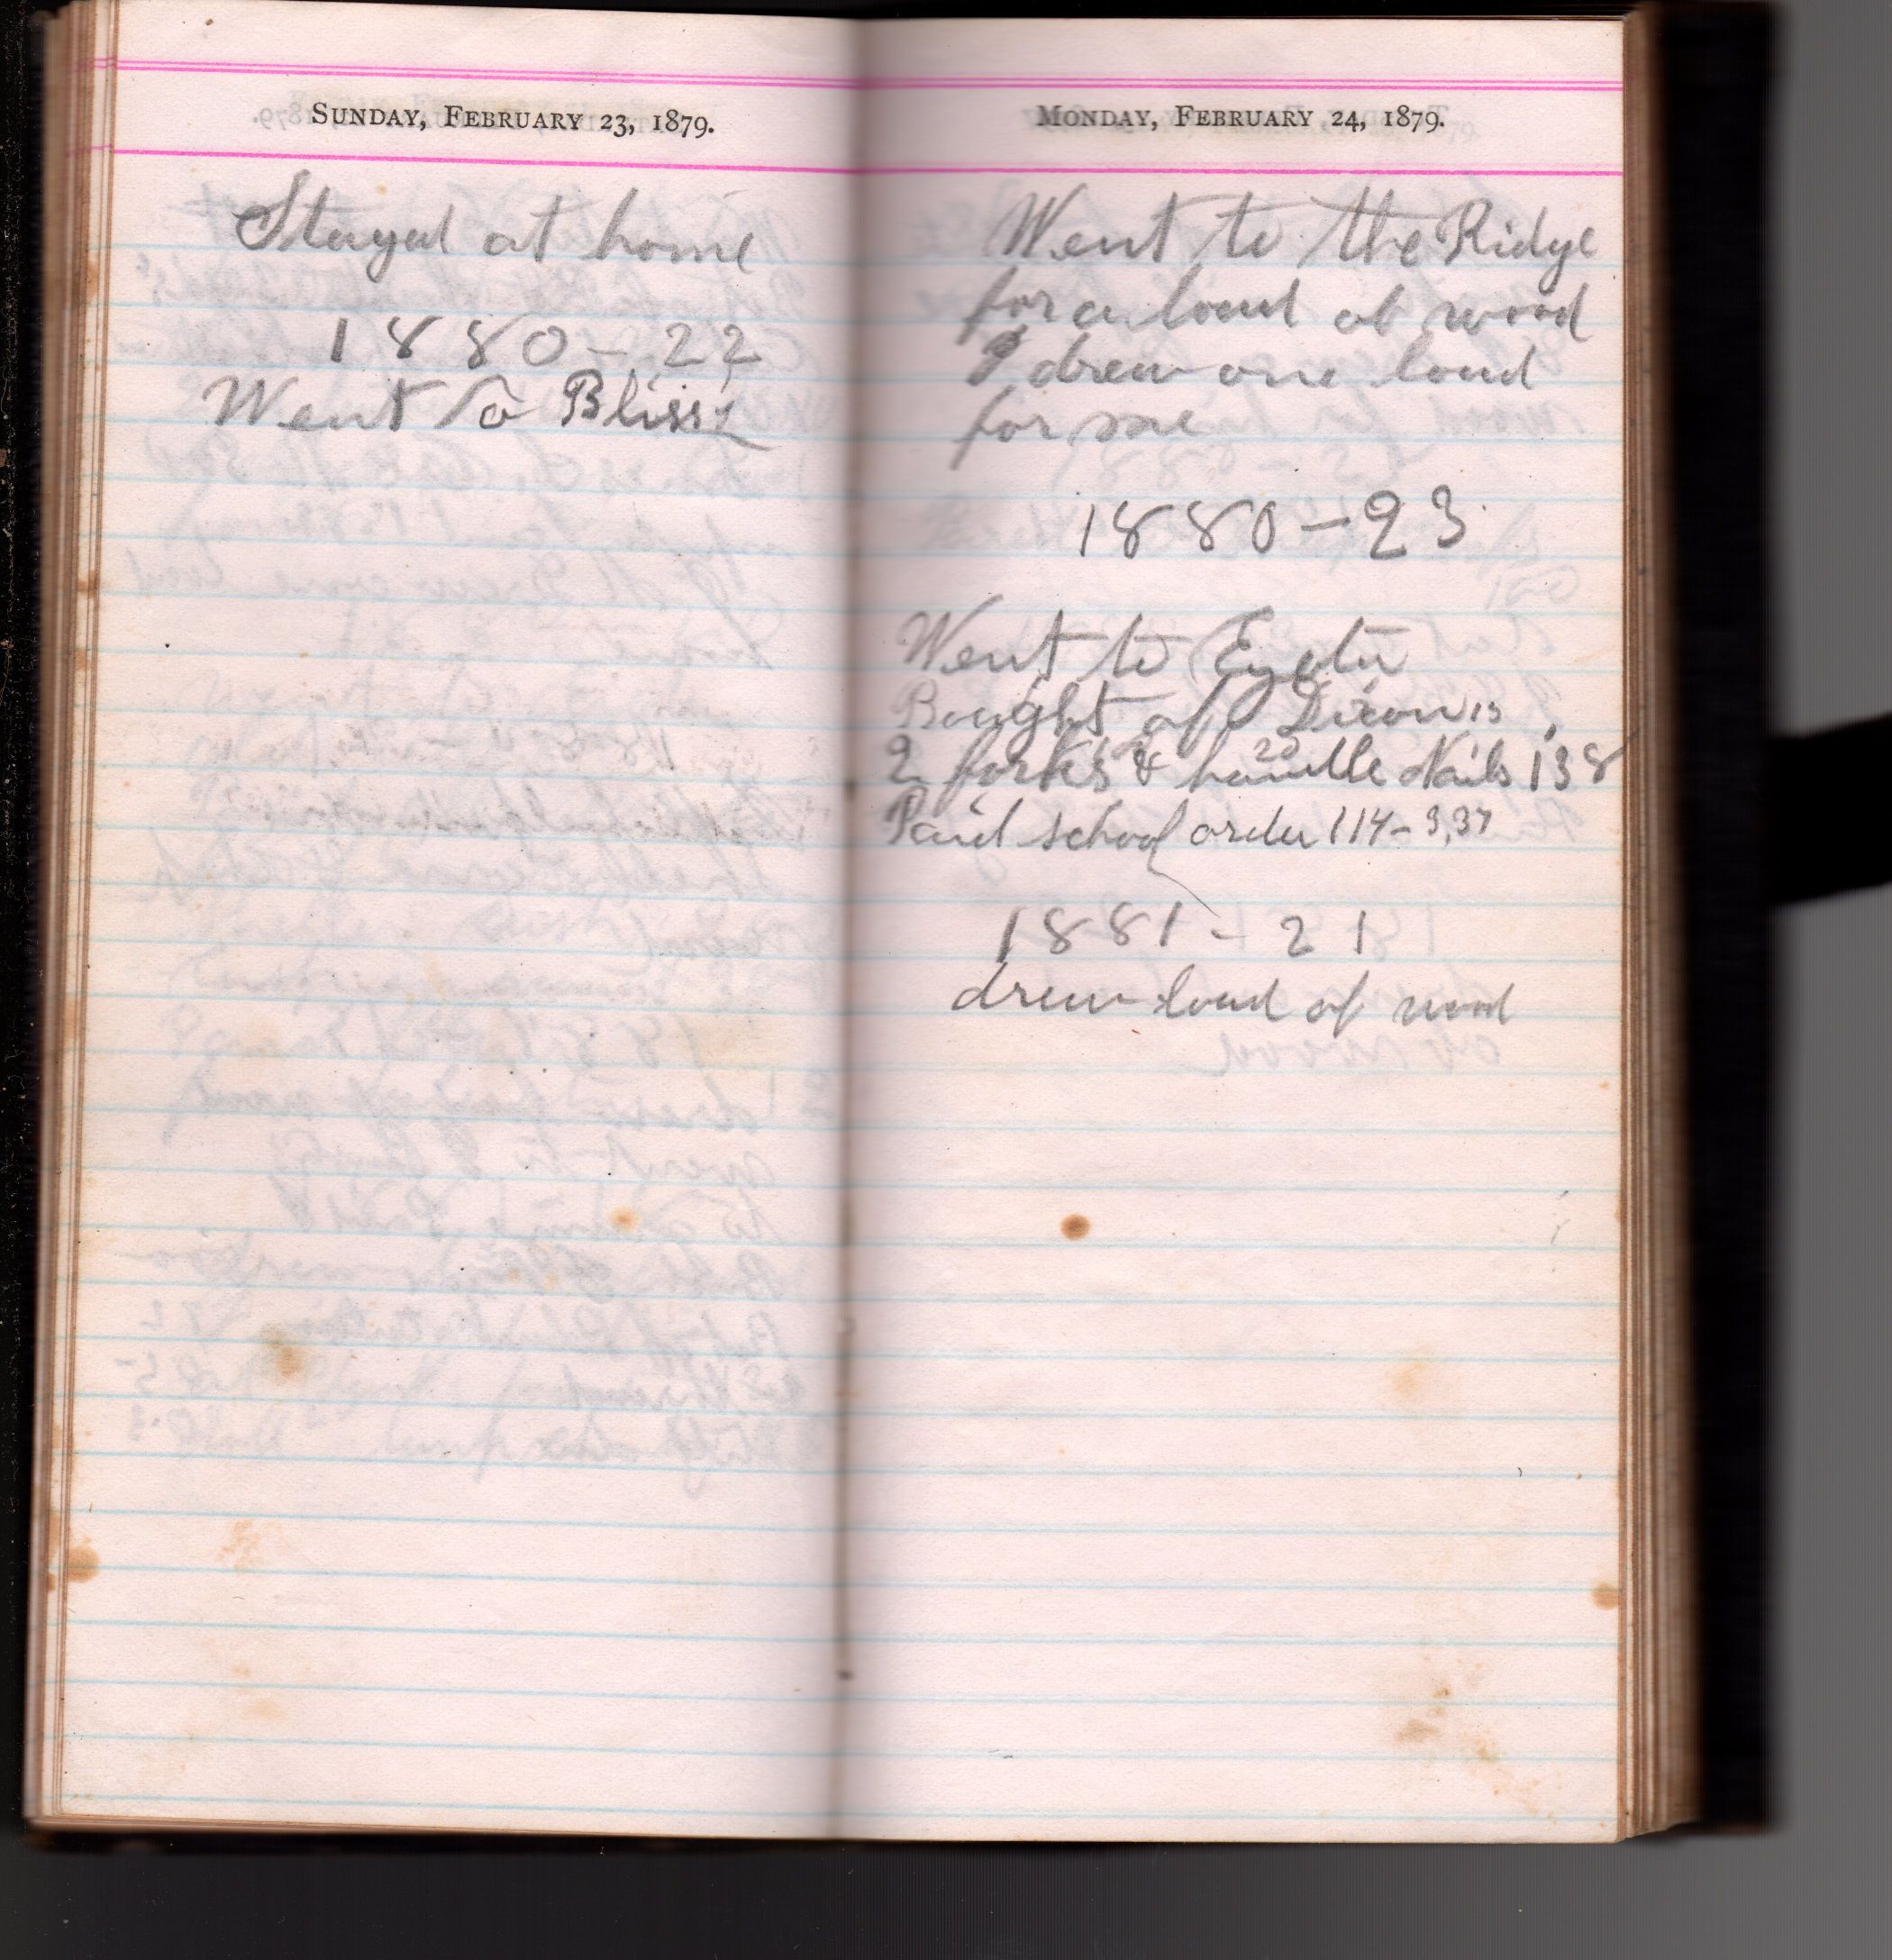 SUNDAY, FEBRUARY 23, 1879.
Stayed at home
1880 - 22
Went to Bliss
MONDAY, FEBRUARY 24, 1879.
Went to the Ridge
for a load of wood
I drew one load
for me
1880 - 23
Went to
Bought of Dixon 13
2 forks & handle Nails 138
Paid school order 114 - 3,37
1881 - 21
drew load of wood